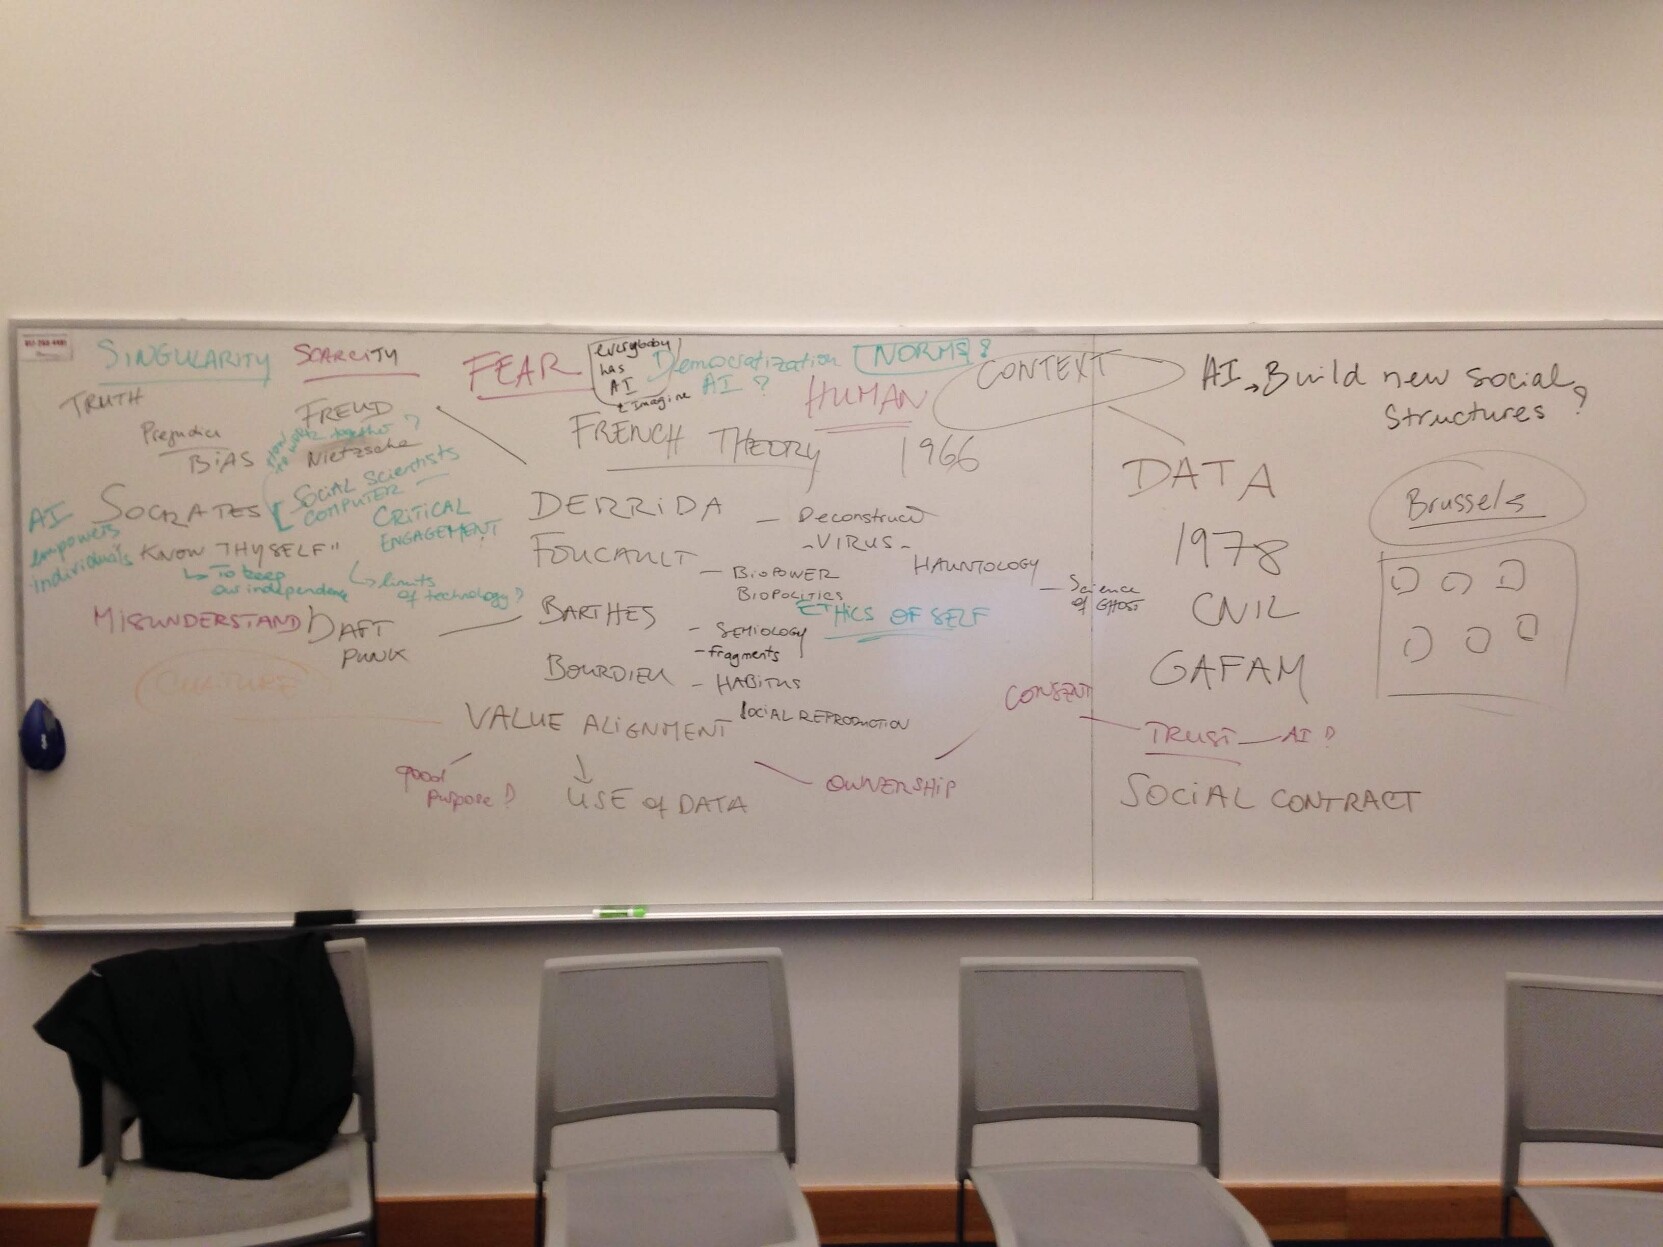 SINGULARITY
SCARCITY
FEAR
everybody
has
AI
Imagine
Democratization
AI ?
NORMS ?
HUMAN
CONTEXT
AI Build new social
structures ?
TRUTH
Prejudice
BIAS
FREUD
to work together ?
Nietzsche
SOCIAL SCIENTISTS
COMPUTER —
FRENCH THEORY 1966
AI
empowers
individuals
SOCRATES
CRITICAL
ENGAGEMENT
KNOW THYSELF"
↳ To keep
our independence
↳ limits
of technology ?
MISUNDERSTAND
DAFT
PUNK
CULTURE
DERRIDA — Deconstruct
- VIRUS -
HAUNTOLOGY — Science
of GHOST
FOUCAULT — BIOPOWER
BIOPOLITICS
ETHICS OF SELF
BARTHES - SEMIOLOGY
- fragments
BOURDIEU - HABITUS
SOCIAL REPRODUCTION
VALUE ALIGNMENT
good
purpose ?
USE of DATA
OWNERSHIP
CONSENT
TRUST — AI ?
DATA
1978
CNIL
GAFAM
SOCIAL CONTRACT
Brussels